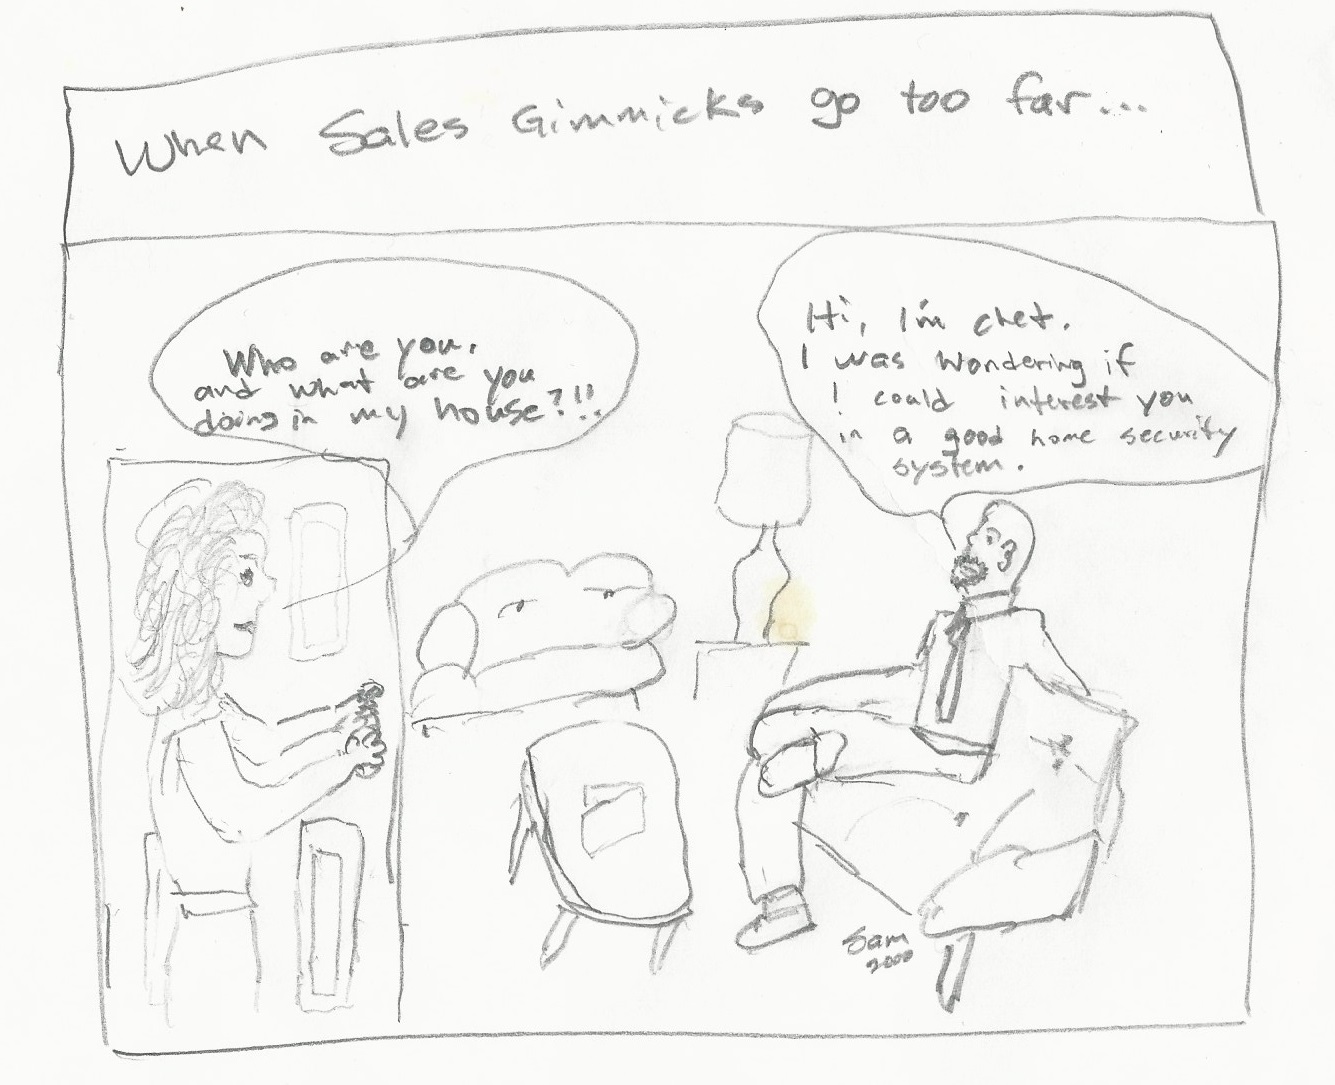 When Sales Gimmicks go too far...
Who are you,
and what are you
doing in my house?!!
Hi, I'm chet.
I was wondering if
I could interest you
in a good home security
system.
Sam
2000